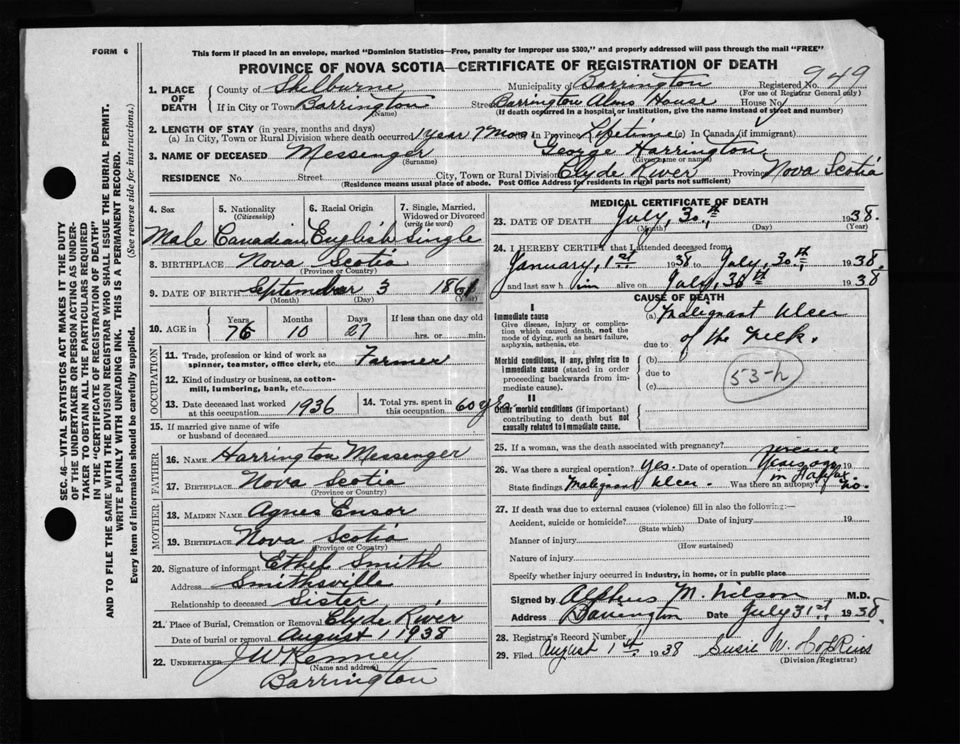 FORM 6
This form if placed in an envelope, marked "Dominion Statistics—Free, penalty for improper use $300," and properly addressed will pass through the mail "FREE"
PROVINCE OF NOVA SCOTIA—CERTIFICATE OF REGISTRATION OF DEATH
1. PLACE OF DEATH County of Shelburne Municipality of Barrington Registered No. 949
(For use of Registrar General only)
If in City or Town Barrington Street Barrington Alms House House No.
(Name) (If death occurred in a hospital or institution, give the name instead of street and number)
2. LENGTH OF STAY (in years, months and days)
(a) In City, Town or Rural Division where death occurred 1 year 7 mos In Province Lifetime (c) In Canada (if immigrant)
3. NAME OF DECEASED Messenger George Harrington
(Surname) (Given name or names)
RESIDENCE No. Street City, Town or Rural Division Clyde River Province Nova Scotia
(Residence means usual place of abode. Post Office Address for residents in rural parts not sufficient)
4. Sex 5. Nationality (Citizenship) 6. Racial Origin 7. Single, Married, Widowed or Divorced (write the word)
Male Canadian English Single
8. BIRTHPLACE Nova Scotia
(Province or Country)
9. DATE OF BIRTH September 3 1861
(Month) (Day) (Year)
10. AGE in Years Months Days If less than one day old
76 10 27 hrs. or min.
OCCUPATION
11. Trade, profession or kind of work as spinner, teamster, office clerk, etc. Farmer
12. Kind of industry or business, as cotton-mill, lumbering, bank, etc.
13. Date deceased last worked at this occupation 1936 14. Total yrs. spent in this occupation 60 yrs.
15. If married give name of wife or husband of deceased
FATHER
16. NAME Harrington Messenger
17. BIRTHPLACE Nova Scotia
(Province or Country)
MOTHER
18. MAIDEN NAME Agnes Ensor
19. BIRTHPLACE Nova Scotia
(Province or Country)
20. Signature of informant Ethel Smith
Address Smithsville
Relationship to deceased Sister
21. Place of Burial, Cremation or Removal Clyde River
Date of burial or removal August 1 1938
22. UNDERTAKER J W Kenney
(Name and address)
Barrington
MEDICAL CERTIFICATE OF DEATH
23. DATE OF DEATH July, 30th, 1938.
(Month) (Day) (Year)
24. I HEREBY CERTIFY that I attended deceased from
January, 1st. 1938 to July, 30th, 1938.
and last saw him alive on July, 30th 1938
CAUSE OF DEATH
I
Immediate cause (a) Malignant Ulcer
Give disease, injury or complication which caused death, not the mode of dying, such as heart failure, asphyxia, asthenia, etc.
due to of the neck.
Morbid conditions, if any, giving rise to immediate cause (stated in order proceeding backwards from immediate cause).
(b)
due to
(c)
53-h
II
Other morbid conditions (if important) contributing to death but not causally related to immediate cause.
25. If a woman, was the death associated with pregnancy?
26. Was there a surgical operation? Yes. Date of operation years ago 19
in Halifax.
State findings Malignant Ulcer. Was there an autopsy? no.
27. If death was due to external causes (violence) fill in also the following:—
Accident, suicide or homicide? Date of injury 19
(State which)
Manner of injury
(How sustained)
Nature of injury
Specify whether injury occurred in industry, in home, or in public place
Signed by Alpheus M. Wilson M.D.
Address Barrington Date July 31st, 1938
28. Registrar's Record Number
29. Filed August 1st. 1938 Susie W. Hopkins
(Division Registrar)
SEC. 46—VITAL STATISTICS ACT MAKES IT THE DUTY
OF THE UNDERTAKER OR PERSON ACTING AS UNDER-
TAKER TO OBTAIN ALL THE PARTICULARS REQUIRED
IN THE "CERTIFICATE OF REGISTRATION OF DEATH"
AND TO FILE THE SAME WITH THE DIVISION REGISTRAR WHO SHALL ISSUE THE BURIAL PERMIT.
WRITE PLAINLY WITH UNFADING INK. THIS IS A PERMANENT RECORD.
Every item of information should be carefully supplied. (See reverse side for instructions.)